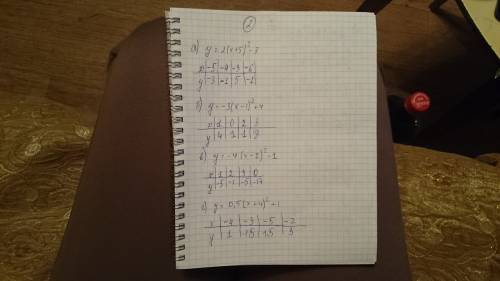 2
а) y = 2(x+5)²-3
x -5 -4 -3 -6
y -3 -1 5 -1
б) y = -3(x-1)²+4
x 1 0 2 3
y 4 1 1
в) y = -4(x-2)²-1
x 1 2 3 0
y -5 -1 -5 -17
г) y = 0,5(x+4)²+1
x -4 -3 -5 -2
y 1 1,5 1,5 3